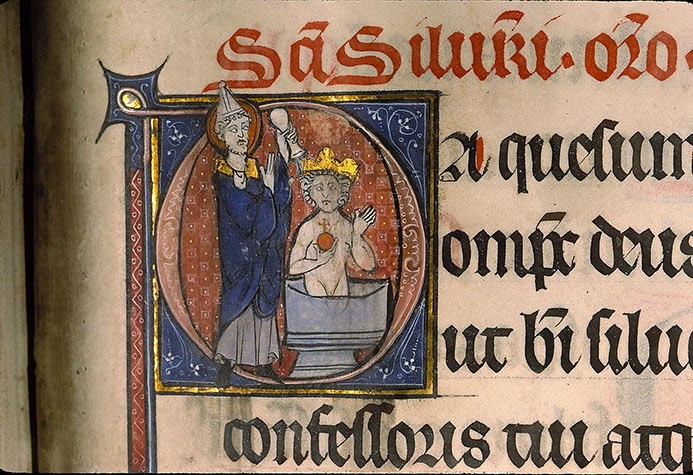 Sc̄i Silūri · or̄o ·
Da quesum
omp̄s deus
ut b̄i silue
confessoris tui atq